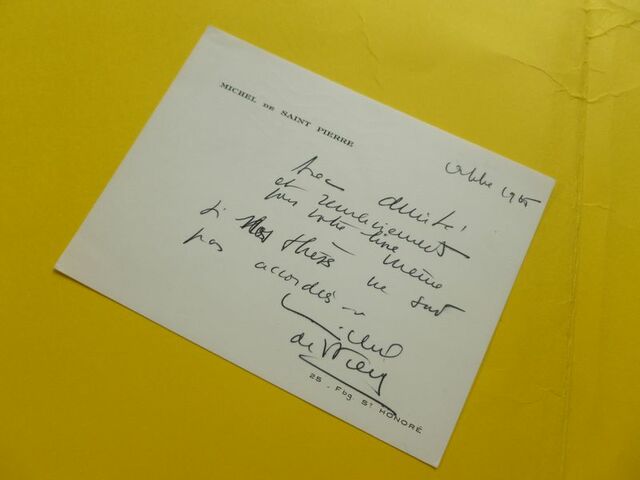 MICHEL DE SAINT PIERRE
Octobre 1965
Avec amitié,
et remerciements
pour votre livre - même
si nos thèses ne sont
pas accordées -
Michel
de St Pierre
25, Fbg St HONORÉ